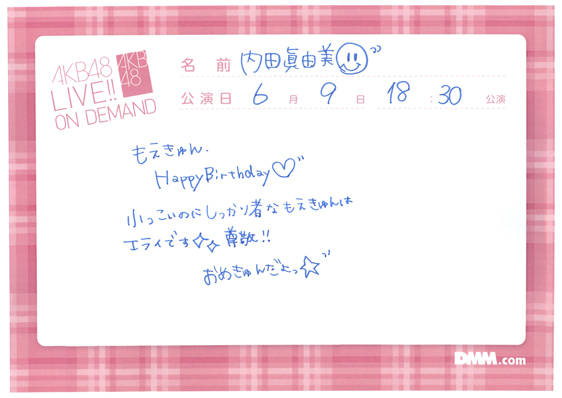 AKB48
LIVE!!
ON DEMAND
AKB
48
名 前 内田眞由美
公演日 6 月 9 日 18 : 30 公演
もえきゅん.
HappyBirthday♡
小っこいのにしっかり者なもえきゅんは
エライです☆☆ 尊敬!!
おめきゅんだよっ☆
DMM.com